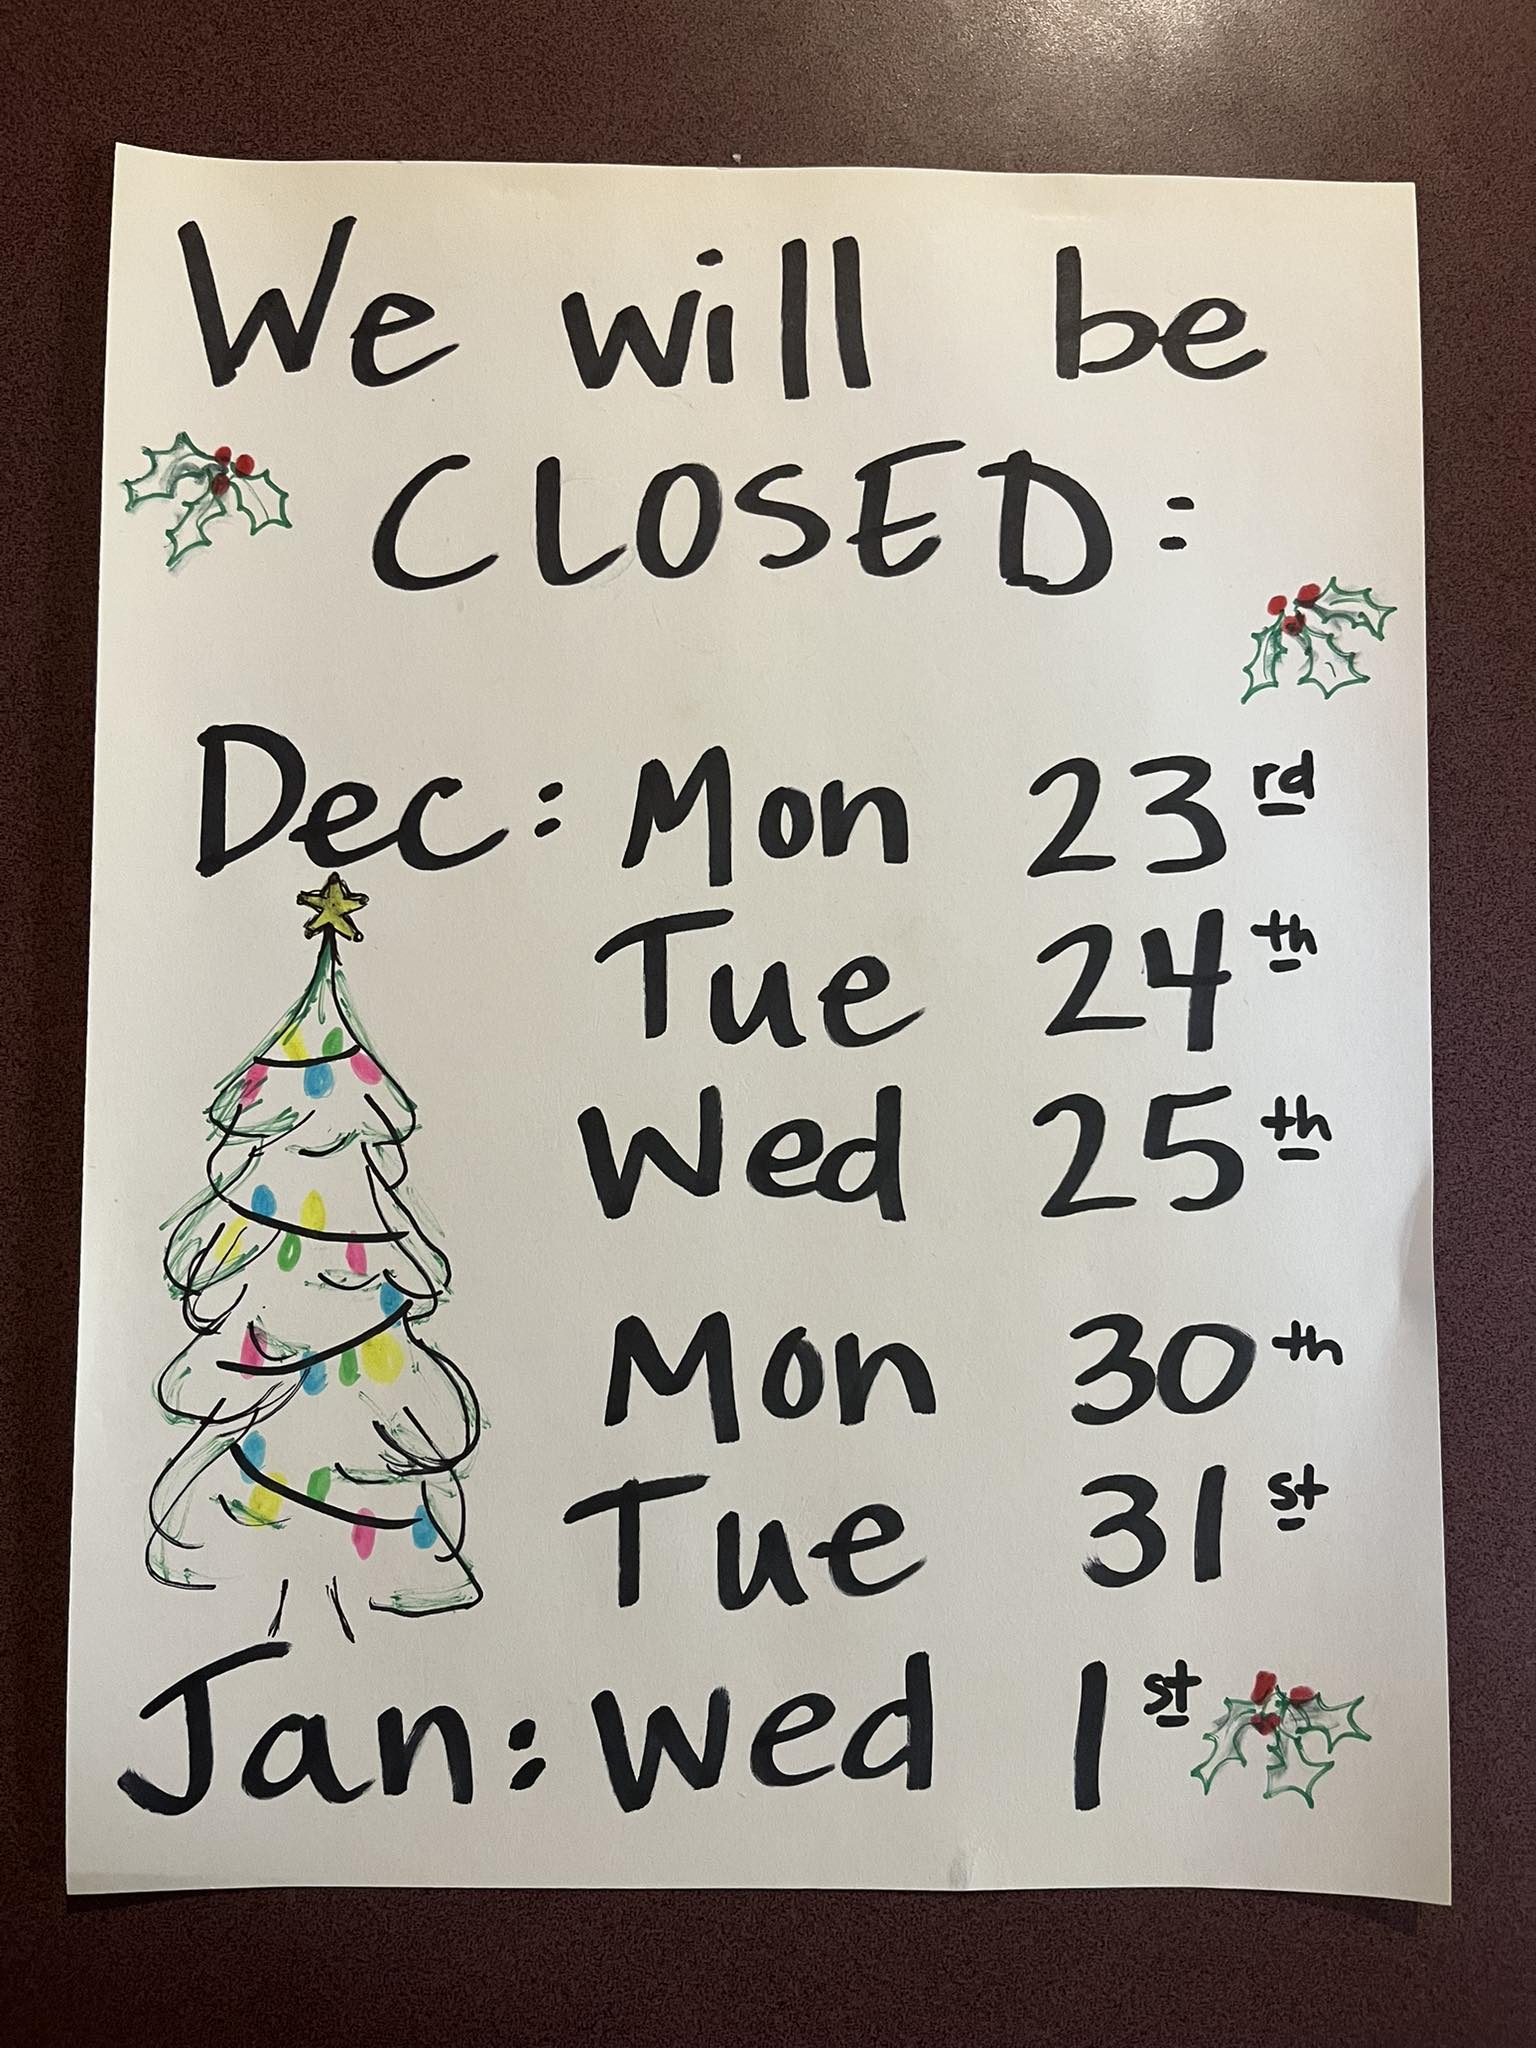 We will be
CLOSED:
Dec: Mon 23rd
Tue 24th
Wed 25th
Mon 30th
Tue 31st
Jan: Wed 1st